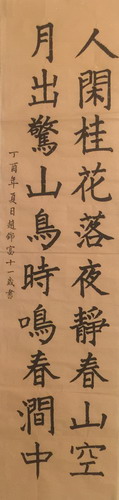 人閑桂花落夜靜春山空
月出驚山鳥時鳴春澗中
丁酉年夏日趙鄧富十一歲書